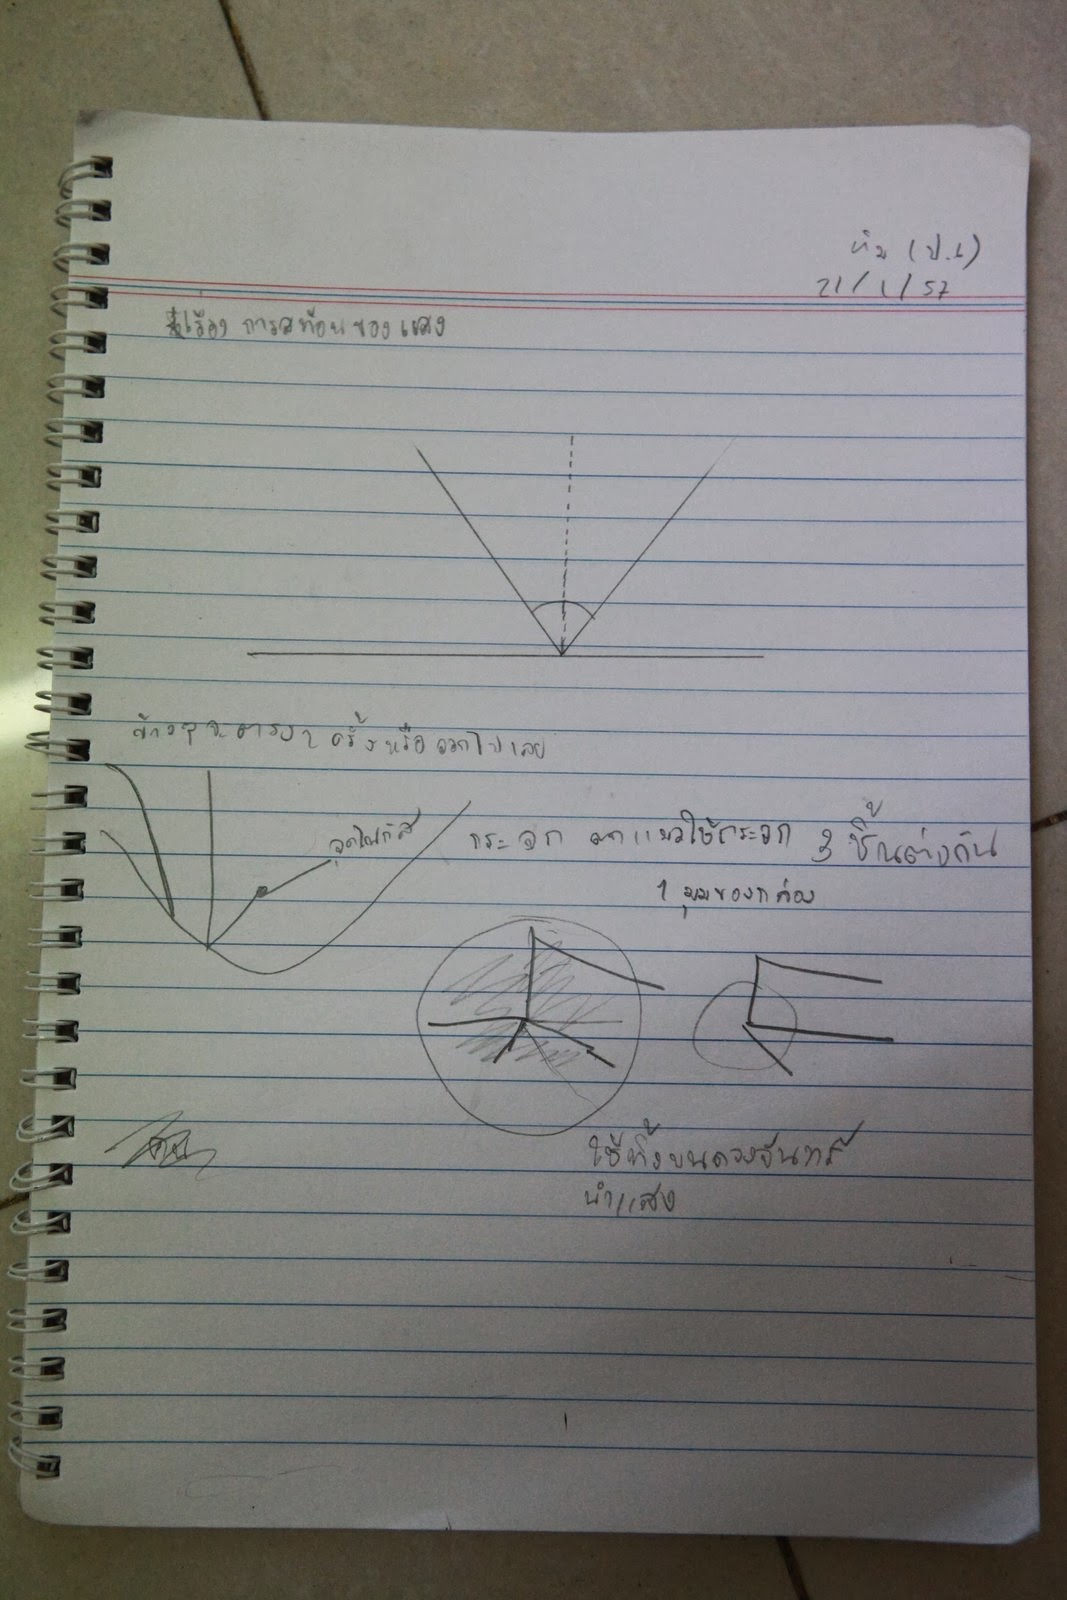 ทิม (ป.6)
21/1/57
เรื่อง การสท้อนของแสง
ครั้งหรือออกไปเลย
จุดโฟกัส
กระจก แนวใช้กระจก 3 ชิ้นต่างกัน
1 มุมของกล่อง
ใช้ทิ้งบนดวงจันทร์
นำแสง